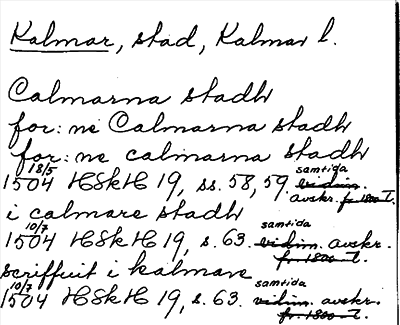 Kalmar, stad, Kalmar l.
Calmarna stadh
for: ne Calmarna stadh
for: ne calmarna stadh
18/5 samtida
1504 HSkH 19, ss. 58, 59. vidim.
avskr. fr. 1800-t.
i calmare stadh
10/7 samtida
1504 HSkH 19, s. 63. vidim. avskr.
fr. 1800-t.
scriffuit i kalmare
10/7 samtida
1504 HSkH 19, s. 63. vidim. avskr.
fr. 1800-t.